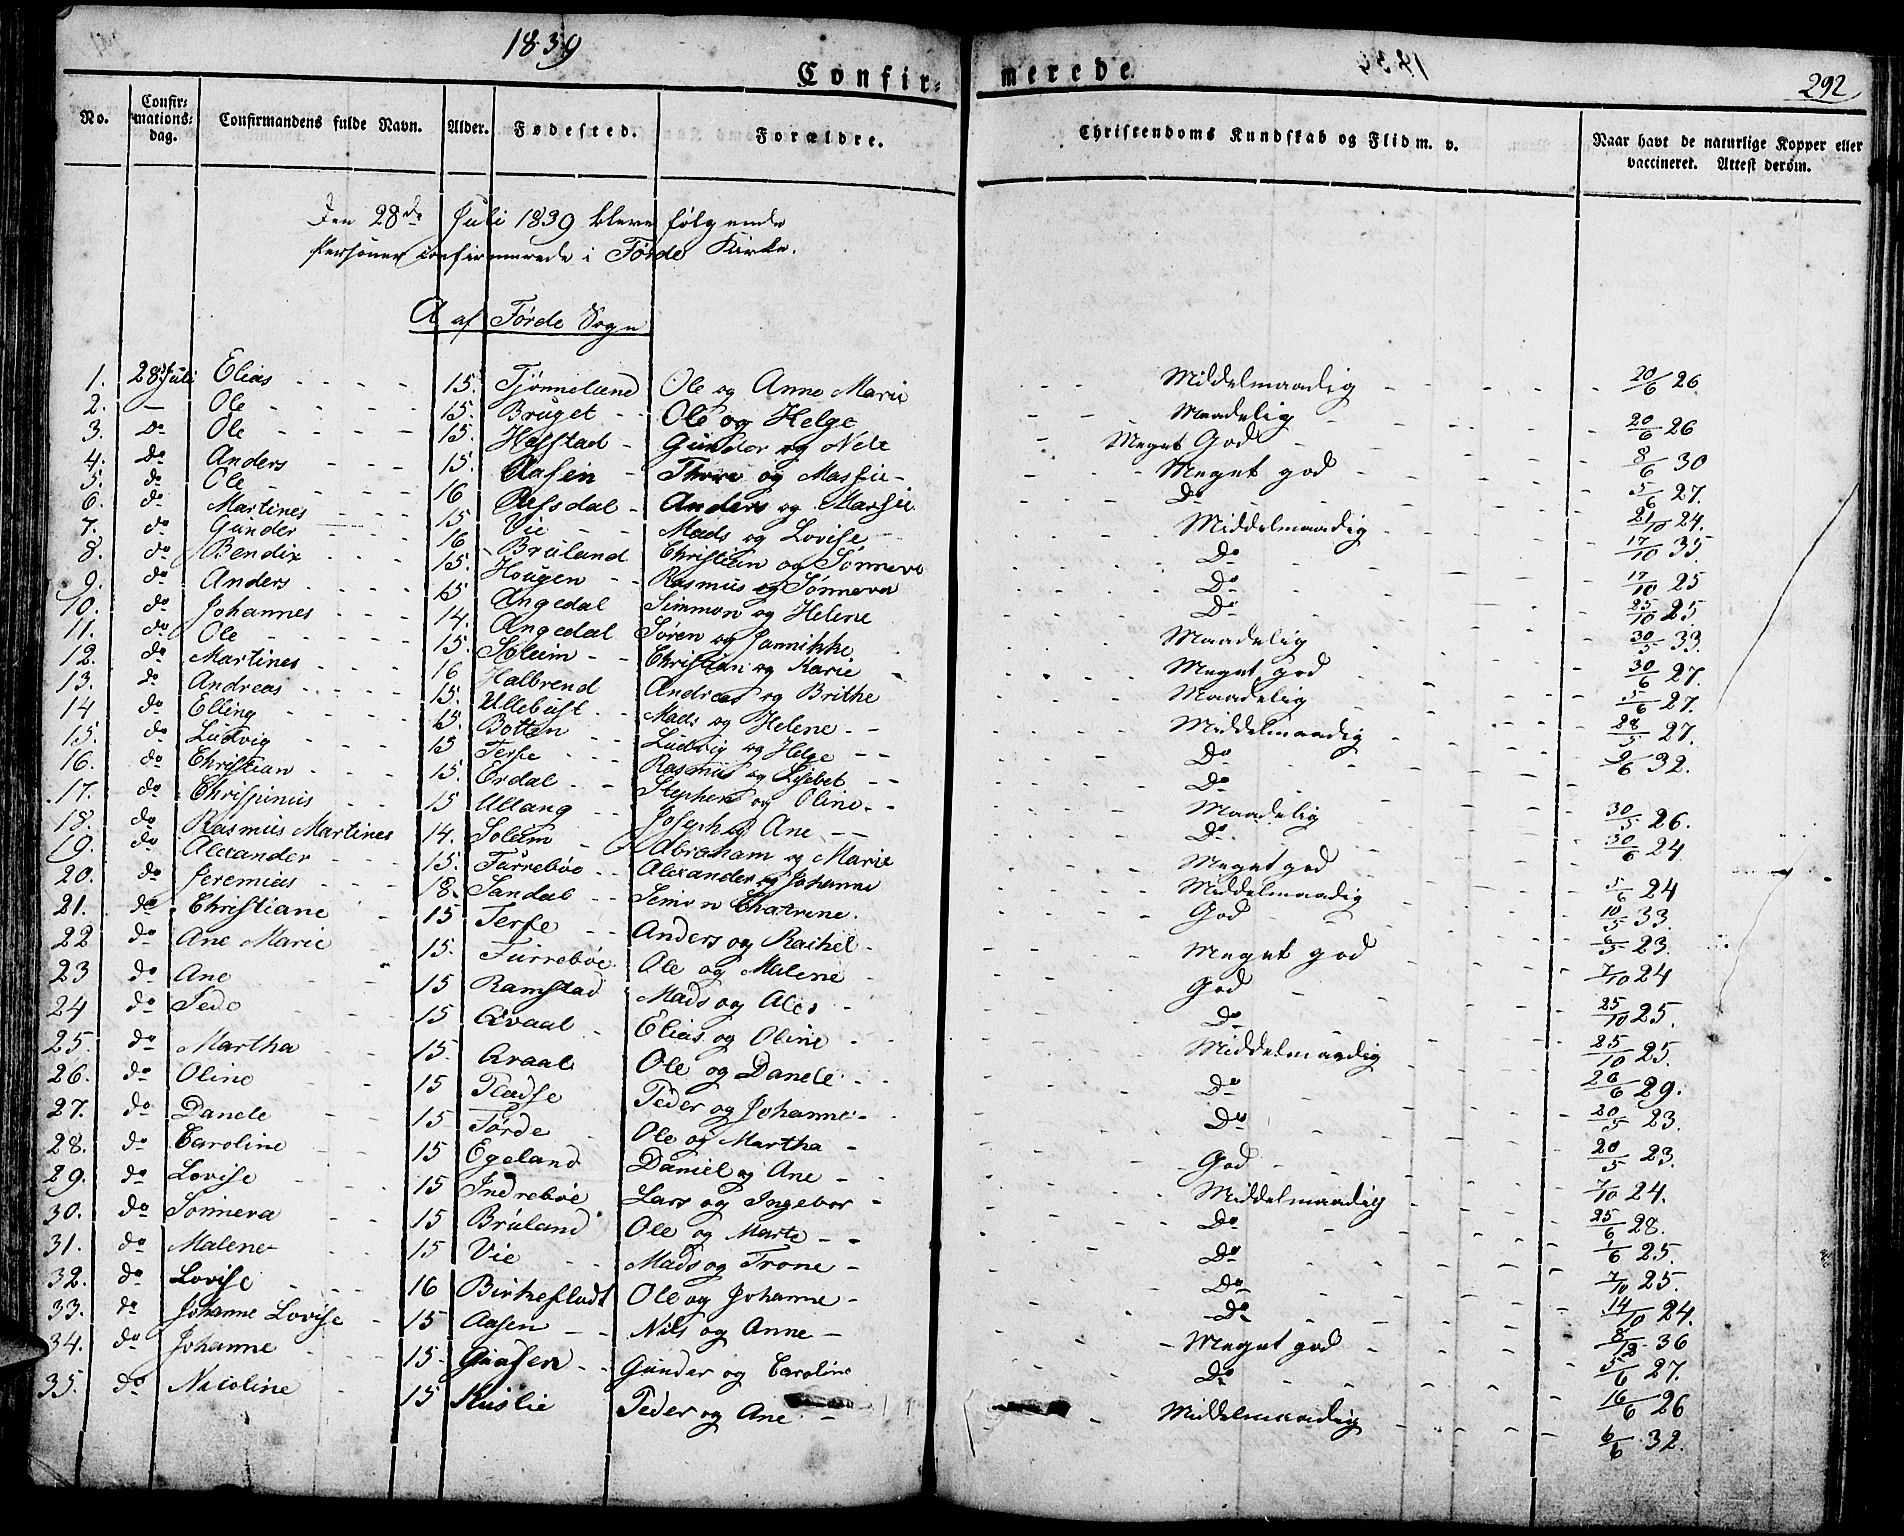 1839
Confir-
merede
292
No.
Confir-
mations-
dag.
Confirmandens fulde Navn.
Alder.
Fødested.
Forældre.
Christendoms Kundskab og Flid m. v.
Naar havt de naturlige Kopper eller
vaccineret. Attest derom.
Den 28de Juli 1839 bleve følgende
Personer confirmerede i Førde Kirke.
A af Førde Sogn
1. 28 Juli Elias 15. Tjønneland Ole og Anne Marie Middelmaadig 20/6 26
2. — Ole 15. Bruget Ole og Helge Maadelig 20/6 26
3. Do Ole 15. Hafstad Gunder og Nele Meget God 8/6 30
4. Do Anders 15. Aasen Thore og Massie Meget god 5/6 27.
5. do Ole 16 Refsdal Anders og Marsie Do 21/10 24.
6. do Martines 15 Vie Mads og Lovise Middelmaadig 17/10 35
7. do Gunder 16 Bruland Christian og Sønneva Do 17/10 25
8. do Bendix 15. Hougen Rasmus og Sønneva Do 25/10 25.
9. do Anders 15 Angedal Simmon og Helene Do 30/5 33.
10. do Johannes 14. Angedal Søren og Jannikke Maadelig 30/6 27.
11. do Ole 15. Soleim Christian og Karie Meget god 5/6 27.
12. do Martines 16 Halbrend Andreas og Brithe Maadelig 28/5 27.
13. do Andreas 15. Ullebust Mads og Helene Middelmaadig 9/6 32.
14 do Elling 15. Botten Ludvig og Helge Do
15. do Ludvig 15 Ferse Rasmus og Lisebet Do 30/5 26.
16. do Christian 15. Erdal Stephen og Oline Maadelig 30/6 24
17. do Chrispinus 15 Ullang Joseph og Ane Do
18. do Rasmus Martines 14. Soleim Abraham og Marie Meget god 5/6 24
19. do Alexander 15. Furrebøe Alexander og Johanne Middelmaadig 10/5 33.
20. do Jeremias 18. Sandal Simon Chatrine. God 6/5 23.
21. do Christiane 15 Ferse Anders og Rachel Meget god 7/10 24
22 do Ane Marie 15. Furrebøe Ole og Malene God 25/10 25.
23 do Ane 15 Ramstad Mads og Ales Do 25/10 25.
24 do Sede 15 Qvaal Elias og Oline Middelmaadig 26/6 29.
25. do Martha 15. Qvaal Ole og Danele Do 20/5 23.
26. do Oline 15 Fladse Peder og Johanne Do 20/5 23.
27. do Danele 15 Førde Ole og Martha God 7/10 24.
28. do Caroline 15 Egeland Daniel og Ane Middelmaadig 25/6 28.
29. do Lovise 15 Indrebøe Lars og Ingebor Do 1/6 25.
30. do Sønneva 15 Bruland Ole og Marte Do 7/10 25.
31. do Malene 15 Vie Mads og Trone Do 14/10 24.
32. do Lovise 16 Birkeflodt Ole og Johanne Do 8/12 36
33. do Johanne Lovise 15 Aasen Nils og Anne Meget god 5/6 27.
34. do Johanne 15. Gaasen Gunder og Caroline Do 16/6 26
35. do Nicoline 15 Kuslie Peder og Ane Middelmaadig 6/6 32.